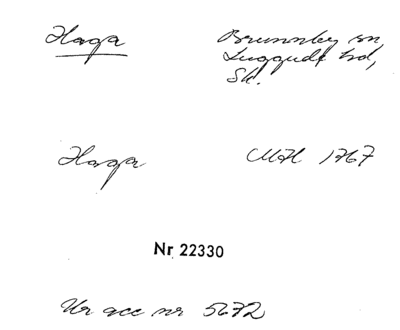 Haga
Brunnby sn,
Luggude hd,
Sk.
Haga
MH 1767
Nr 22330
Ur acc nr 5672